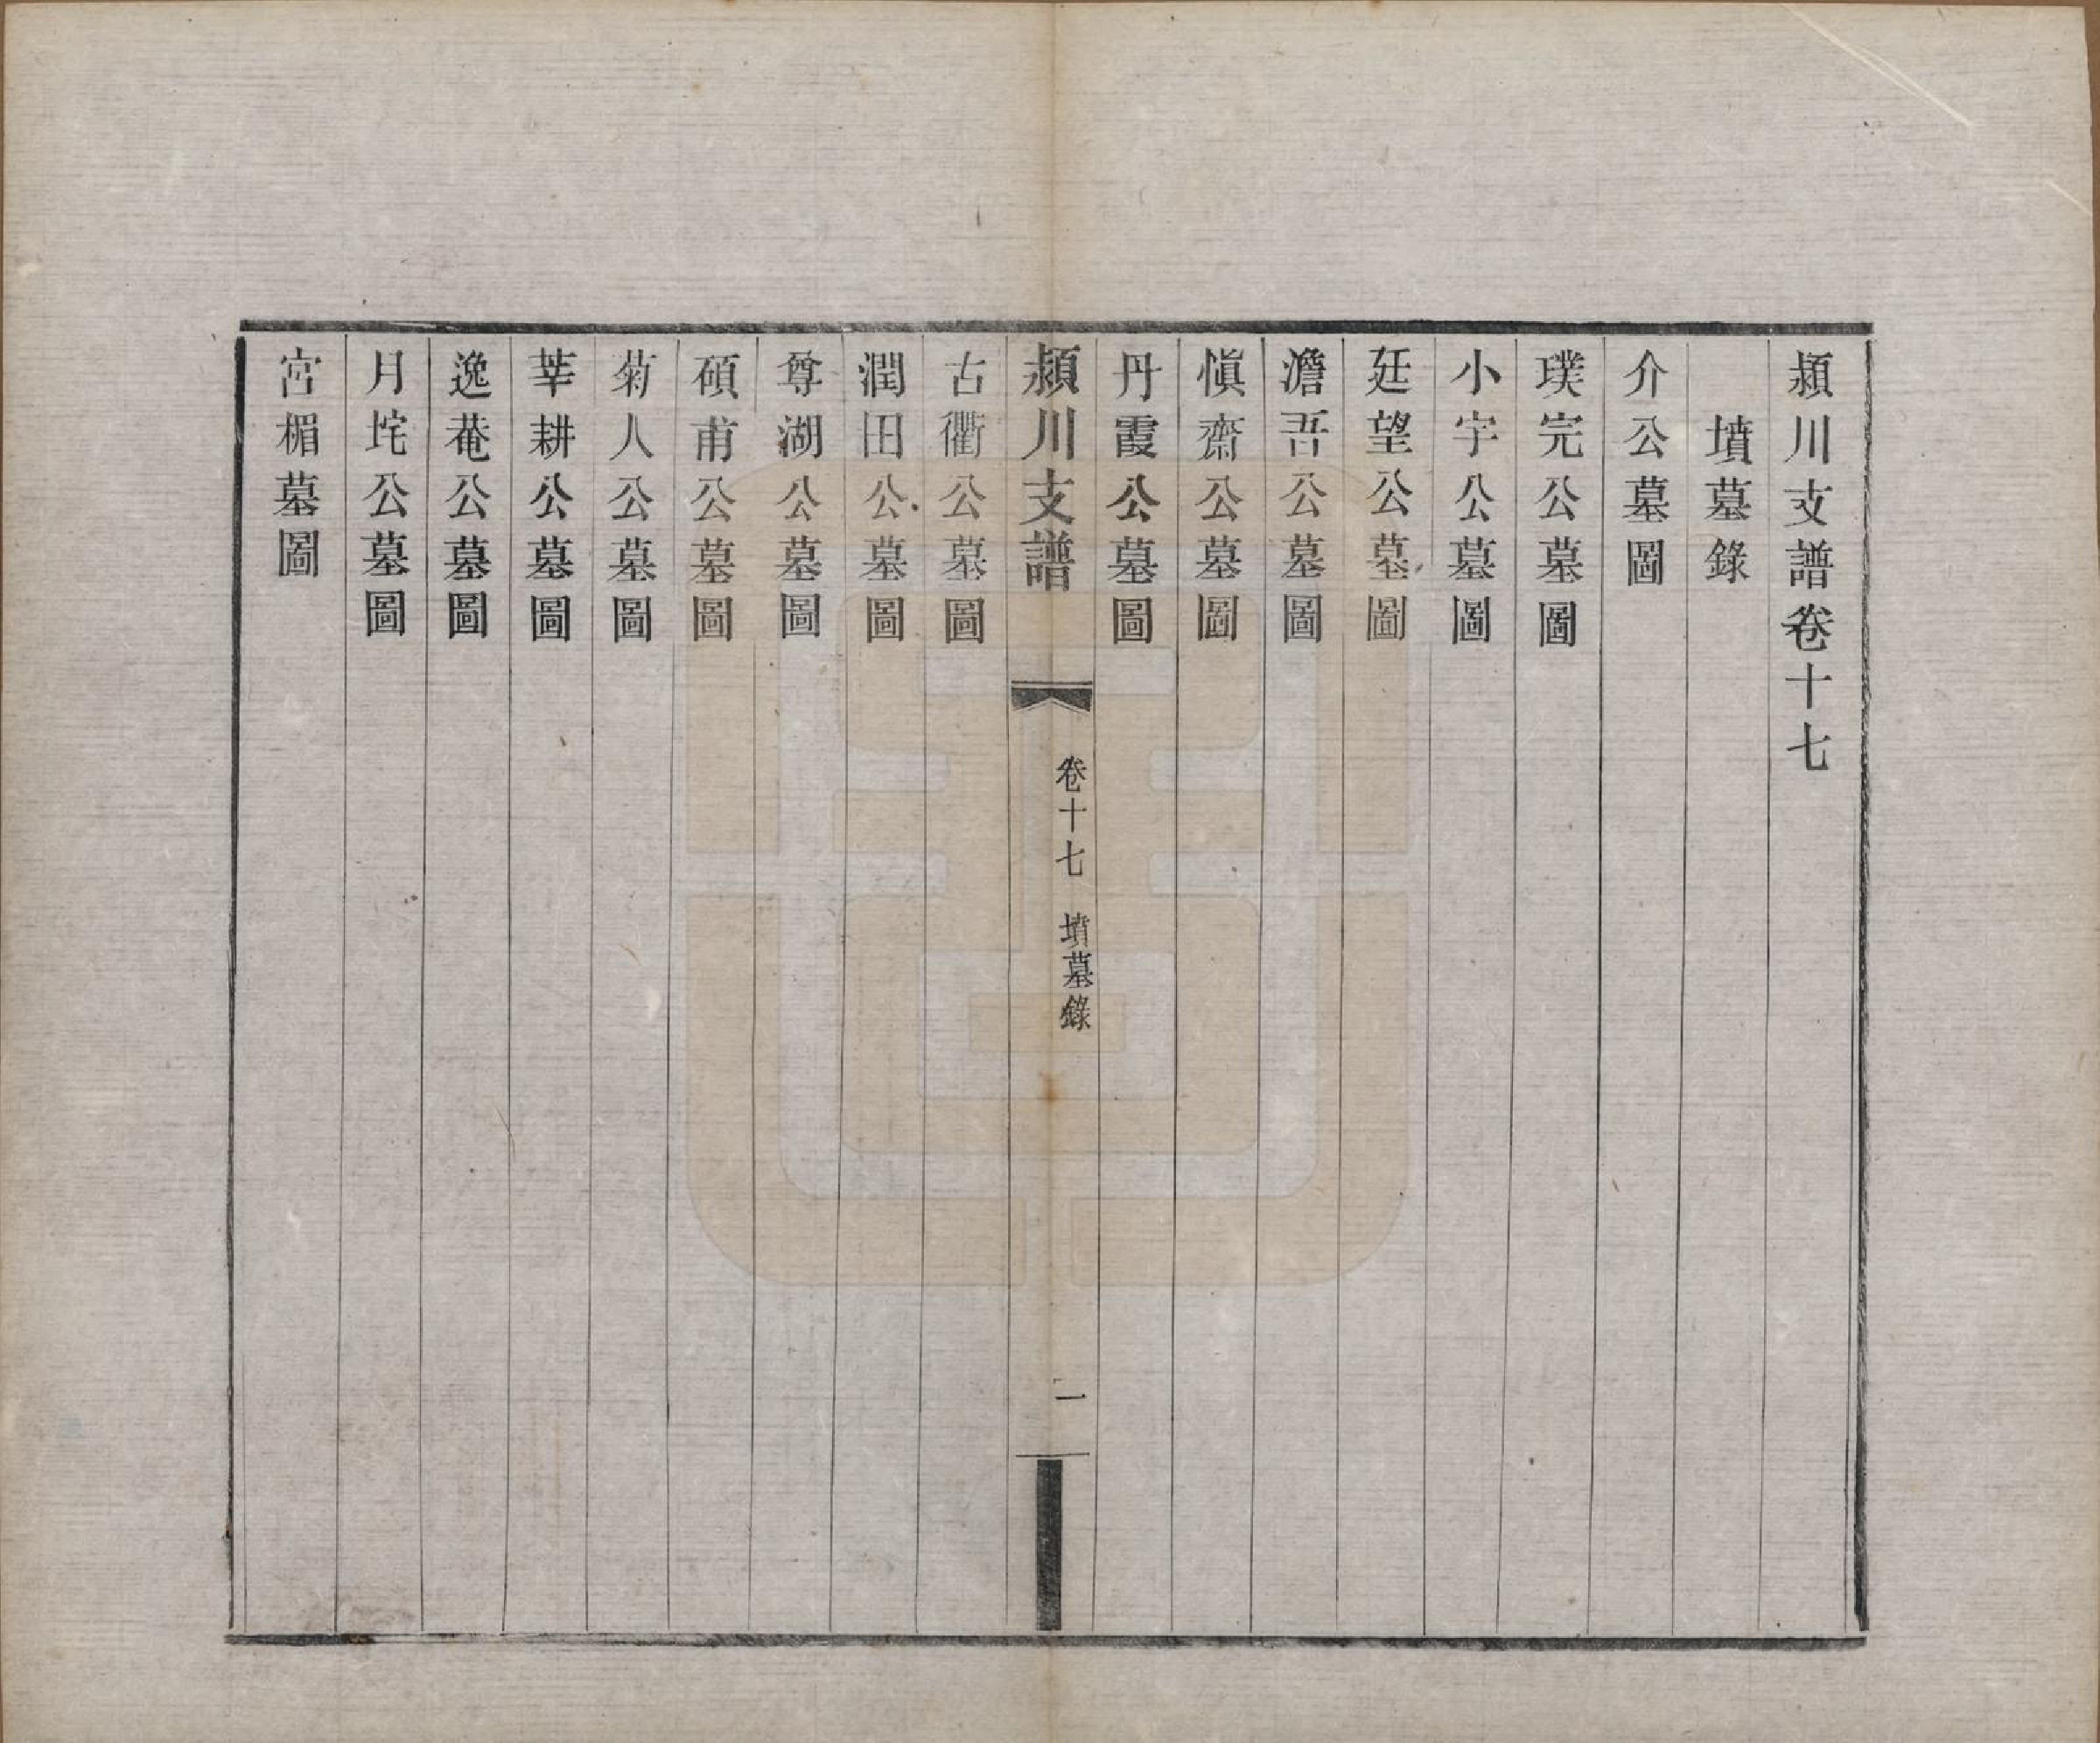 潁川支譜卷十七
墳墓錄
介公墓圖
璞完公墓圖
小宇公墓圖
廷望公墓圖
澹吾公墓圖
愼齋公墓圖
丹霞公墓圖
潁川支譜　卷十七　墳墓錄　一
古衢公墓圖
潤田公墓圖
尊湖公墓圖
碩甫公墓圖
菊人公墓圖
莘耕公墓圖
逸菴公墓圖
月垞公墓圖
宮楣墓圖